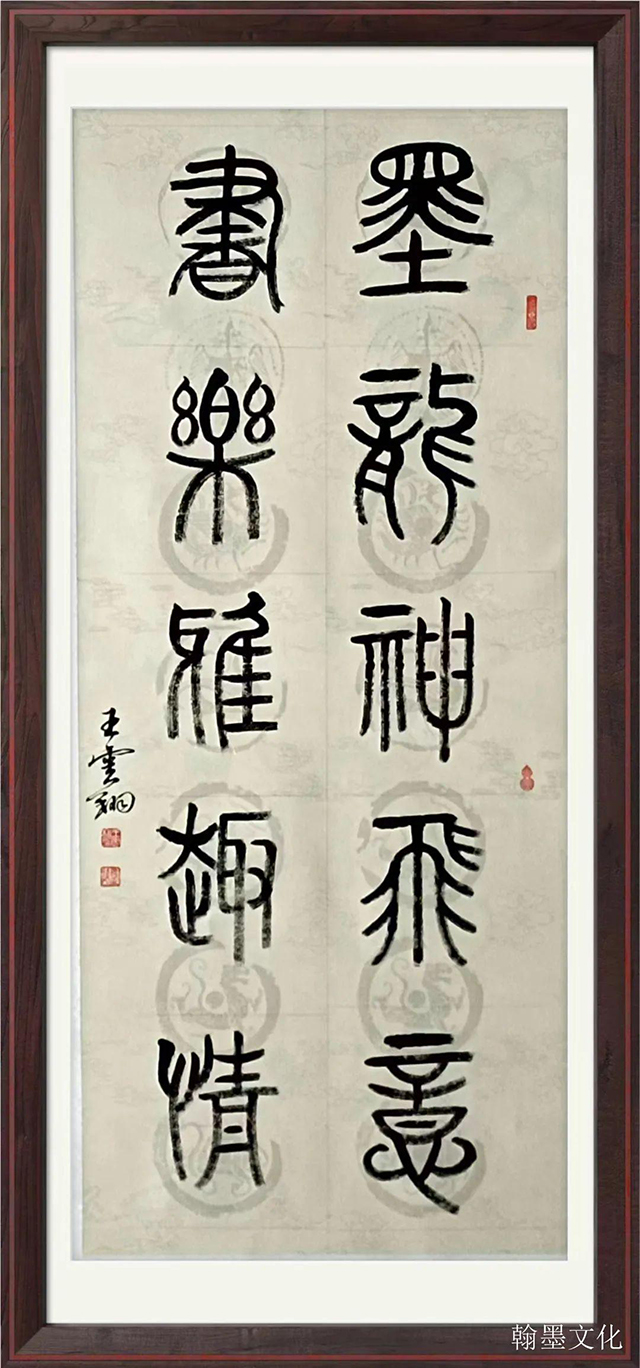 墨龍神飛意
書樂雅趣情
王雲翔
翰墨文化